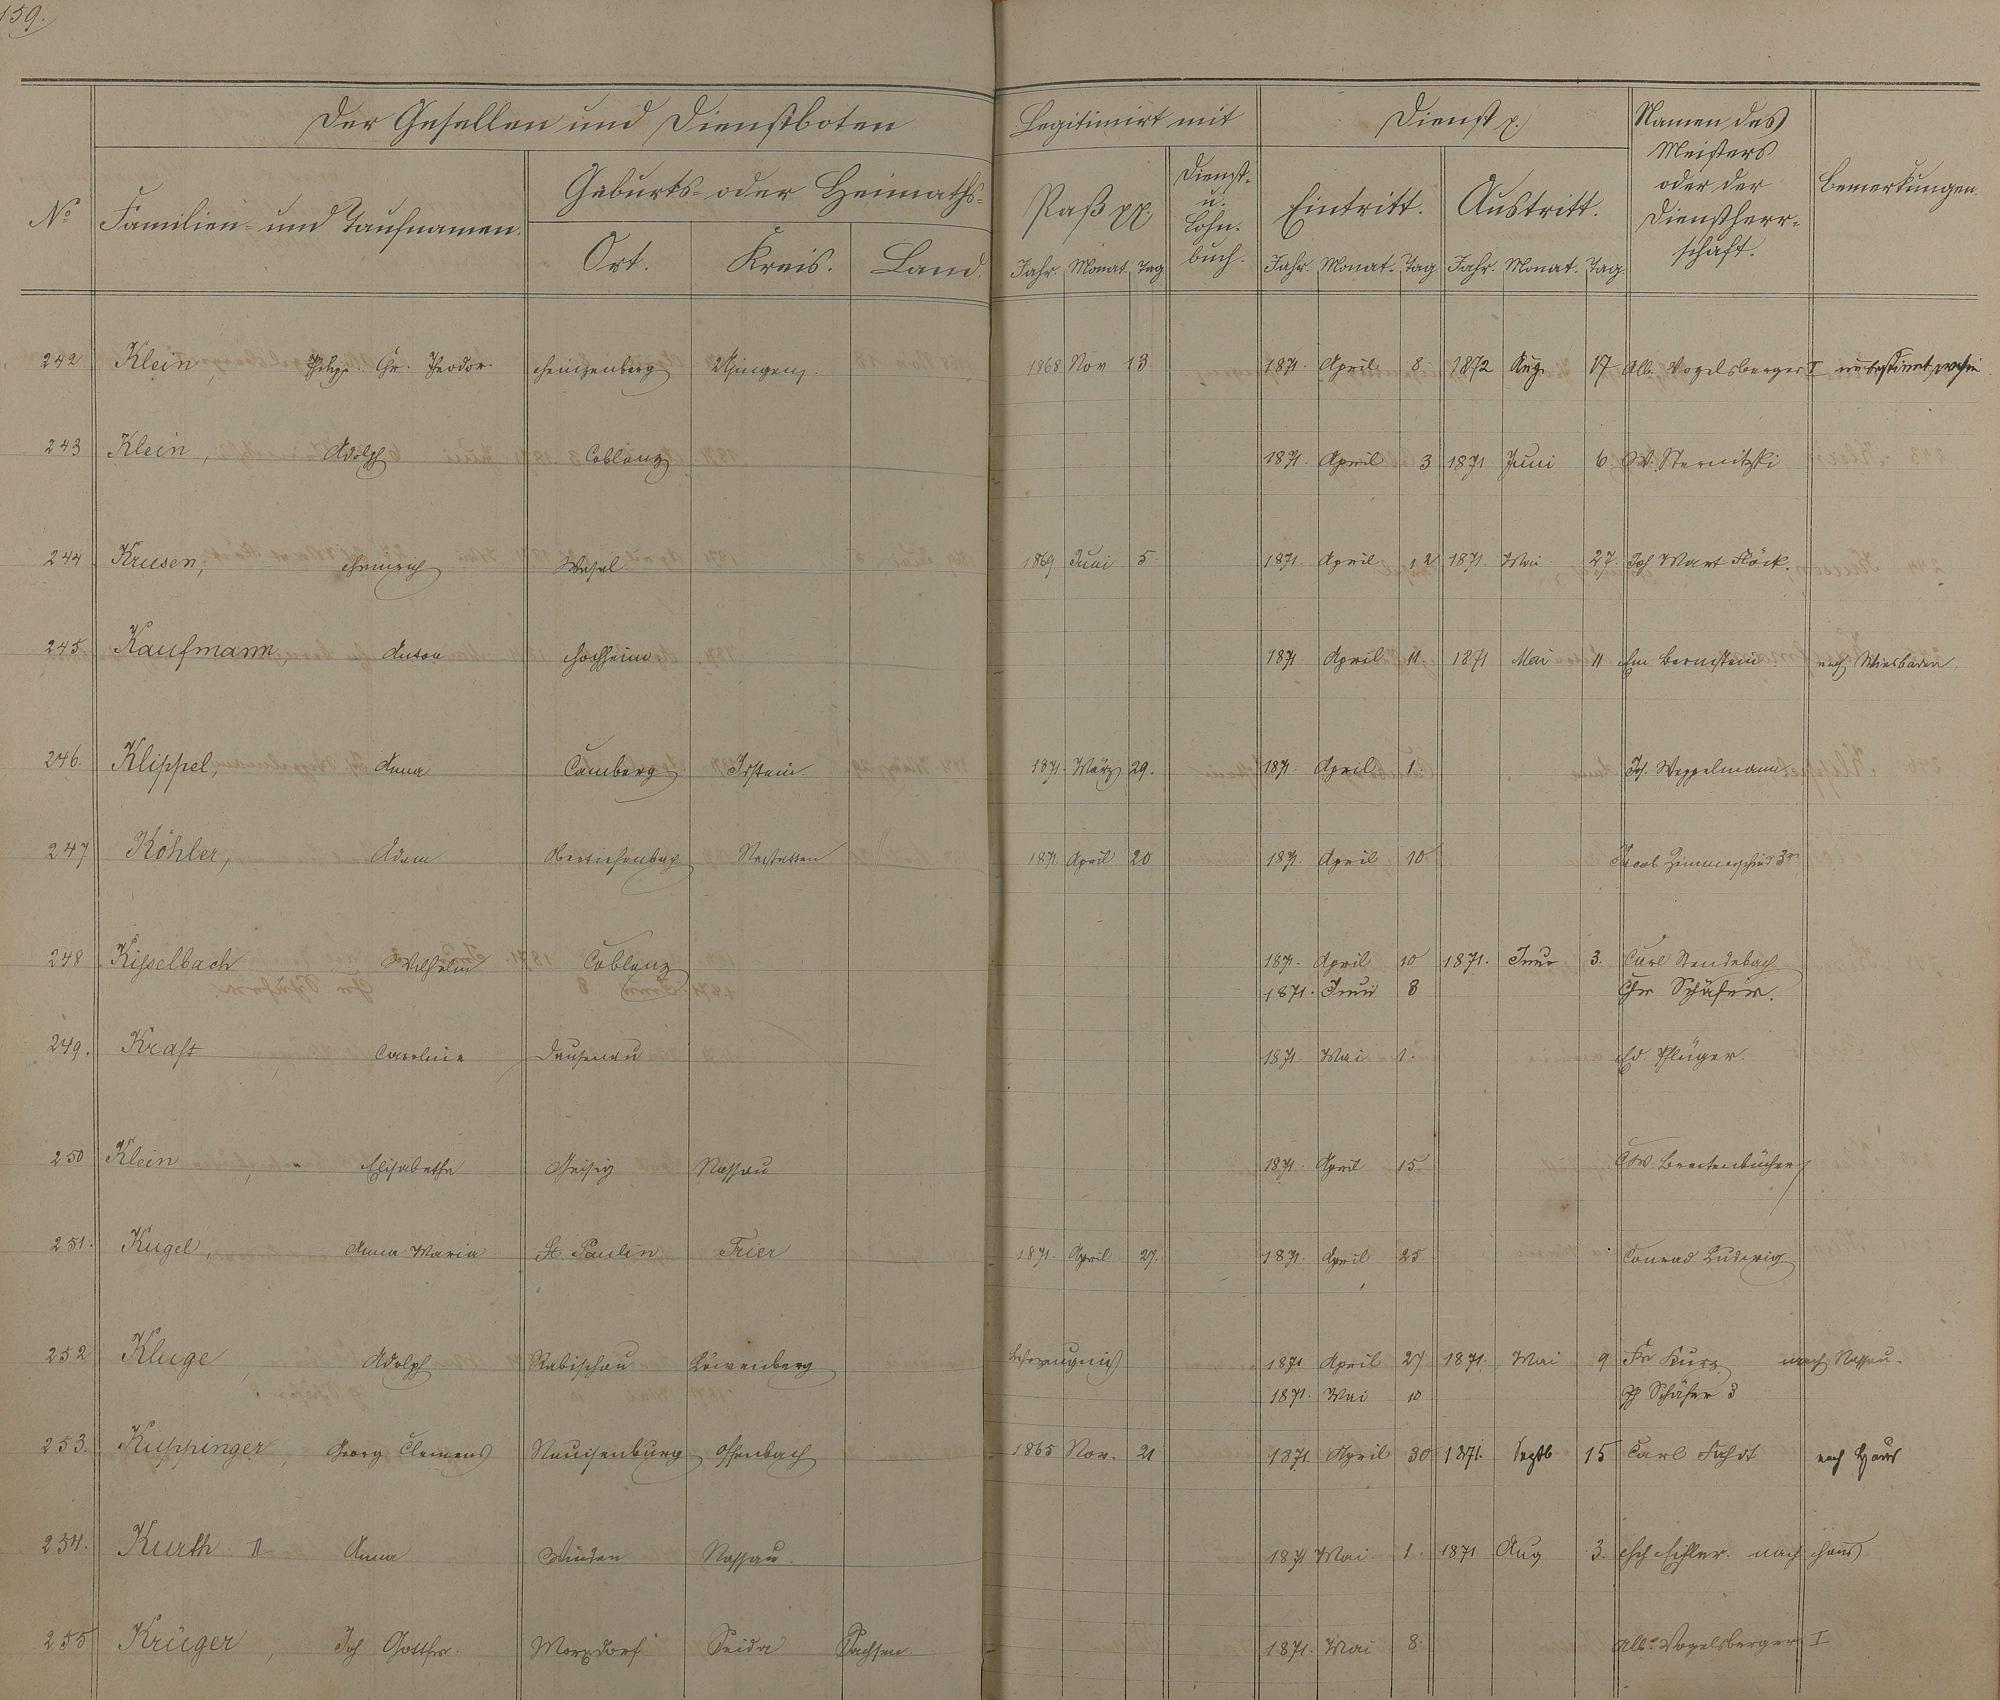 159.
Der Gesellen und Dienstboten
Legitimirt mit
Dienst p.
Namen des Meisters oder der Dienstherrschaft.
Bemerkungen.
No
Familien- und Taufnamen.
Geburts- oder Heimaths-
Ort. Kreis. Land.
Paß pp.
Dienst- u. Lohnbuch.
Eintritt. Austritt.
Jahr. Monat. Tag Jahr. Monat. Tag Jahr. Monat. Tag.
242 Klein, Philipp Chr. Theodor Heinzenberg Usingen. 1868 Nov 13 1871. April 8 1872 Aug. 17 Alb. Vogelsberger I unbestimt wohin
243 Klein, Adolph Coblenz 1871. April 3 1871 Juni 6 W. Sternitzki
244 Krusen, Heinrich Wesel 1869 Juni 5 1871. April 12 1871. Mai 27. Joh Mart Flöck.
245. Kaufmann, Anton Hochheim. 1871 April 11. 1871 Mai 11 Em Bernstein nach Wiesbaden
246. Klippel, Anna Camberg Idstein 1871. März 29. 1871. April 1. Jos. Weppelmann
247 Köhler, Adam Obertiefenbach Nastätten 1871. April 20 1871. April 10 Jacob Zimmerschied 3r
248 Kisselbach Wilhelm Coblenz 1871. April 10 1871. Juni 3. Carl Sendebach
1871. Juni 8 Chr Schäfer.
249. Kraft Caroline Dausenau 1871 Mai 1. Ed. Pflüger.
250 Klein, Elisabetha Geisig Nassau 1871. April 15 C W. Breitenbücher
251. Kugel, Anna Maria St Paulin Trier 1871. April 27. 1871. April 25 Conrad Ludwig
252 Kluge, Adolph Rabischau Löwenberg 1871 April 27 1871. Mai 9 Fr Kurz nach Nassau.
1871. Mai 10 Ph Schäfer 3
253. Kuppinger, Georg Clemens Neuisenburg Offenbach 1865 Nov. 21 1871. April 30 1871. Septb 15 Carl Fahdt nach Haus
254. Kurth II Anna Winden Nassau. 1871 Mai 1. 1871 Aug 3. nach Haus
255 Krüger, Joh Gottfr. Sachsen 1871. Mai 8. Alb. Vogelsberger I